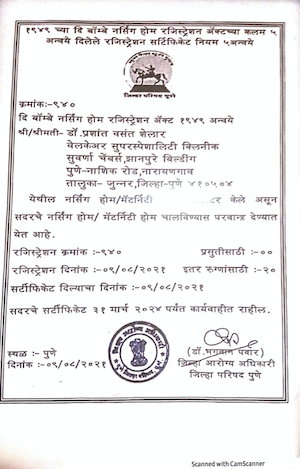 १९४९ च्या दि बॉम्बे नर्सिंग होम रजिस्ट्रेशन ॲक्टच्या कलम ५
अन्वये दिलेले रजिस्ट्रेशन सर्टिफिकेट नियम ५अन्वये
जिल्हा परिषद पुणे
क्रमांकः-९४०
दि बॉम्बे नर्सिंग होम रजिस्ट्रेशन ॲक्ट १९४९ अन्वये
श्री/श्रीमती- डॉ.प्रशांत वसंत शेलार
वेलकेअर सुपरस्पेशालिटी क्लिनीक
सुवर्णा चेंबर्स,झानपुरे बिल्डींग
पुणे-नाशिक रोड,नारायणगाव
तालुका- जुन्नर,जिल्हा-पुणे ४१०५०४
येथील नर्सिंग होम/मॅटर्निटी केले असून
सदरचे नर्सिंग होम/ मॅटर्निटी होम चालविण्यास परवाना देण्यात
येत आहे.
रजिस्ट्रेशन क्रमांक -९४० प्रसुतीसाठी -००
रजिस्ट्रेशन दिनांक -०९/०८/२०२१ इतर रुग्णांसाठी -२०
सर्टीफिकेट दिल्याचा दिनांक -०९/०८/२०२१
सदरचे सर्टीफिकेट ३१ मार्च २०२४ पर्यंत कार्यवाहीत राहील.
स्थळ :- पुणे
दिनांक :-०९/०८/२०२१
(डॉ.भगवान पवार)
जिल्हा आरोग्य अधिकारी
जिल्हा परिषद पुणे
Scanned with CamScanner